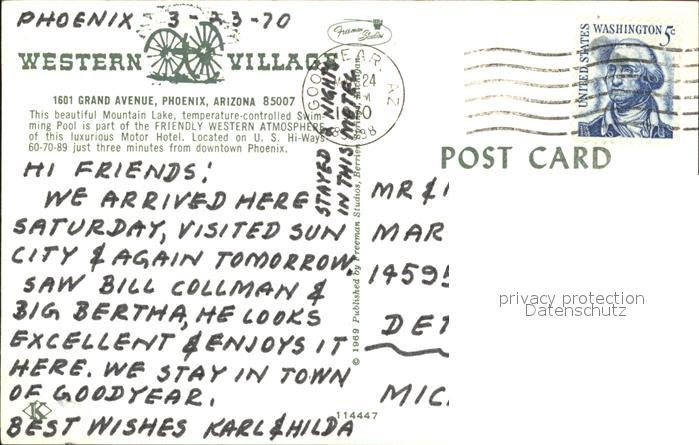 PHOENIX 3-23-70
WESTERN VILLAGE
1601 GRAND AVENUE, PHOENIX, ARIZONA 85007
This beautiful Mountain Lake, temperature-controlled Swim-
ming Pool is part of the FRIENDLY WESTERN ATMOSPHERE
of this luxurious Motor Hotel. Located on U. S. Hi-Ways
60-70-89 just three minutes from downtown Phoenix.
HI FRIENDS!
WE ARRIVED HERE
SATURDAY, VISITED SUN
CITY & AGAIN TOMORROW.
SAW BILL COLLMAN &
BIG BERTHA, HE LOOKS
EXCELLENT & ENJOYS IT
HERE. WE STAY IN TOWN
OF GOODYEAR.
BEST WISHES KARL & HILDA
K
STAYED NIGHTS
IN THIS MOTEL
Freeman Studios
© 1969 Published by Freeman Studios, Berrien Springs, Michigan.
114447
GOODYEAR, AZ
24
UNITED STATES
WASHINGTON 5c
POST CARD
MR &
MAR
14595
DET
MIC
privacy protection
Datenschutz